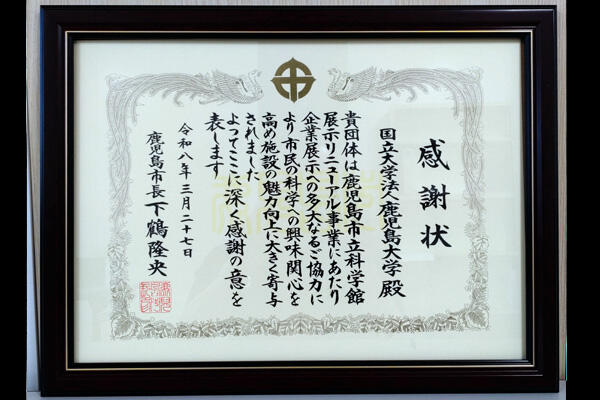 感謝状
国立大学法人鹿児島大学 殿
貴団体は鹿児島市立科学館
展示リニューアル事業にあたり
企業展示への多大なるご協力に
より市民の科学への興味関心を
高め施設の魅力向上に大きく寄与
されました
よってここに深く感謝の意を
表します
令和八年三月二十七日
鹿児島市長 下鶴隆央